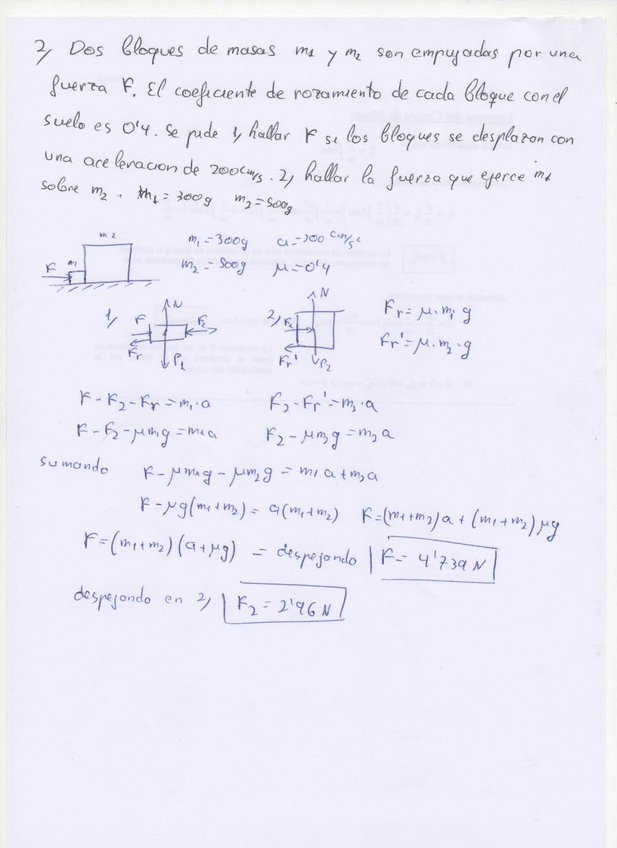 2) Dos bloques de masas m1 y m2 son empujadas por una
fuerza F. El coeficiente de rozamiento de cada bloque con el
suelo es 0'4. Se pide 1) hallar F si los bloques se desplazan con
una aceleracion de 200cm/s. 2) hallar la fuerza que ejerce m1
sobre m2. m1=300g m2=500g
m2
m1
F
m1=300g a=200 cm/s2
m2=500g μ=0'4
1) N F F2 Fr P1
2) N F2 Fr' P2
Fr=μ·m1·g
Fr'=μ·m2·g
F-F2-Fr=m1·a F2-Fr'=m2·a
F-F2-μm1g=m1a F2-μm2g=m2a
sumando F-μm1g-μm2g=m1a+m2a
F-μg(m1+m2)=a(m1+m2) F=(m1+m2)a+(m1+m2)μg
F=(m1+m2)(a+μg) = despejando F=4'739N
despejando en 2) F2=2'96N